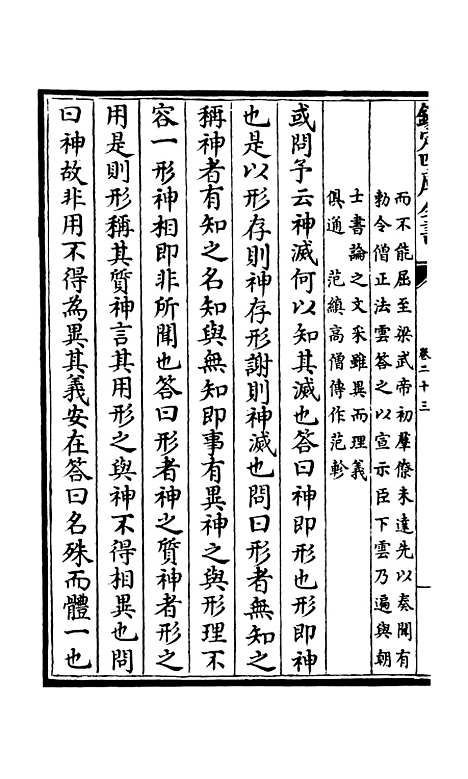 欽定四庫全書
卷二十三
而不能屈至梁武帝初羣僚未達先以奏聞有
勅令僧正法雲答之以宣示臣下雲乃遍與朝
士書論之文采雖異而理義
俱通　范縝高僧傳作范軫
或問予云神滅何以知其滅也答曰神即形也形即神
也是以形存則神存形謝則神滅也問曰形者無知之
稱神者有知之名知與無知即事有異神之與形理不
容一形神相即非所聞也答曰形者神之質神者形之
用是則形稱其質神言其用形之與神不得相異也問
曰神故非用不得為異其義安在答曰名殊而體一也